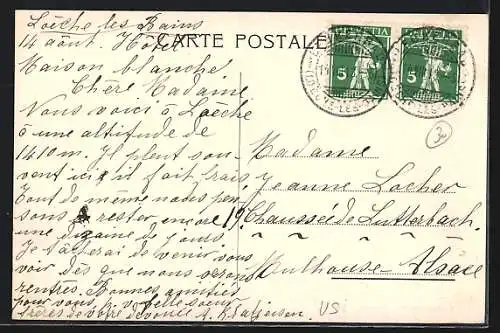 Loèche les Bains
14 août. Hôtel
CARTE POSTALE
Maison blanche
Chère Madame
Nous voici à Loèche
à une altitude de
1410m. Il pleut sou-
vent ici il fait frais,
Tout de même nous pen
sons à rester encore
une dizaine de jours.
Je tâcherai de venir vous
voir dès que nous serons
rentrés. Bonnes amitiés
pour vous, 
HELVETIA
5
HELVETIA
5
Madame
Jeanne Locher
19 Chaussée de Lutterbach
Mulhouse - Alsace
VS